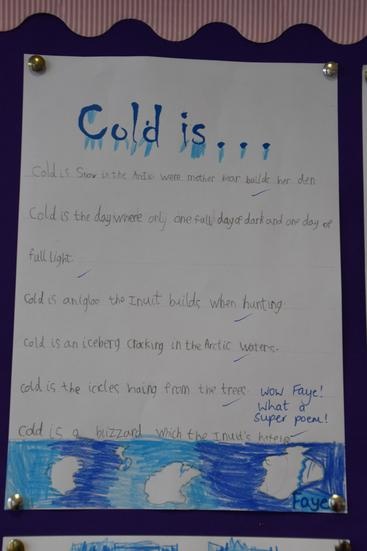 Cold is...
Cold is Snow in the Arctic were mother bear builds her den
Cold is the day where only one full day of dark and one day of
full light.
Cold is an igloo the Inuit builds when hunting
Cold is an iceberg cracking in the Arctic waters.
cold is the icicles haing from the trees
wow Faye!
What a
super poem!
Cold is a blizzard which the Inuit's
Faye